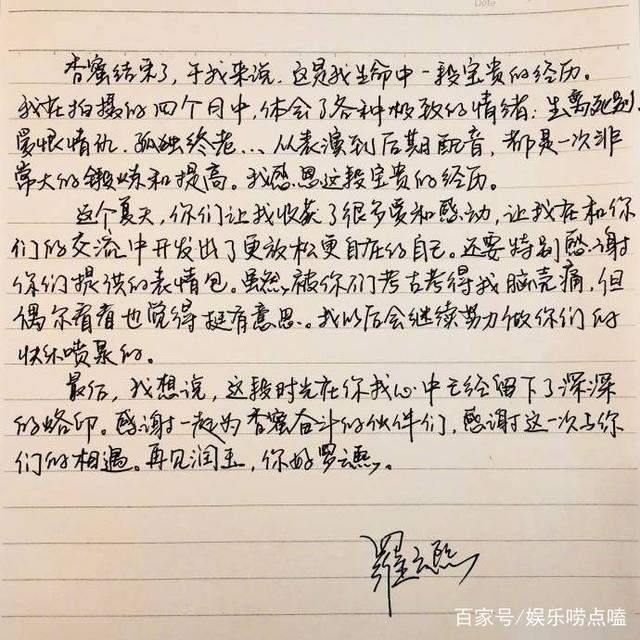 Date
香蜜结束了，于我来说，这是我生命中一段宝贵的经历。
我在拍摄的四个月中，体会了各种极致的情绪：生离死别、
爱恨情仇、孤独终老…从表演到后期配音，都是一次非
常大的锻炼和提高。我感恩这段宝贵的经历。
这个夏天，你们让我收获了很多爱和感动，让我在和你
们的交流中开发出了更放松更自在的自己。还要特别感谢
你们提供的表情包。虽然被你们考古考得我脑壳痛，但
偶尔看看也觉得挺有意思。我以后会继续努力做你们的
快乐喷泉的。
最后，我想说，这段时光在你我心中已经留下了深深
的烙印。感谢一起为香蜜奋斗的伙伴们，感谢这一次与你
们的相遇。再见润玉，你好罗云熙。
羅云熙
百家号/娱乐唠点嗑